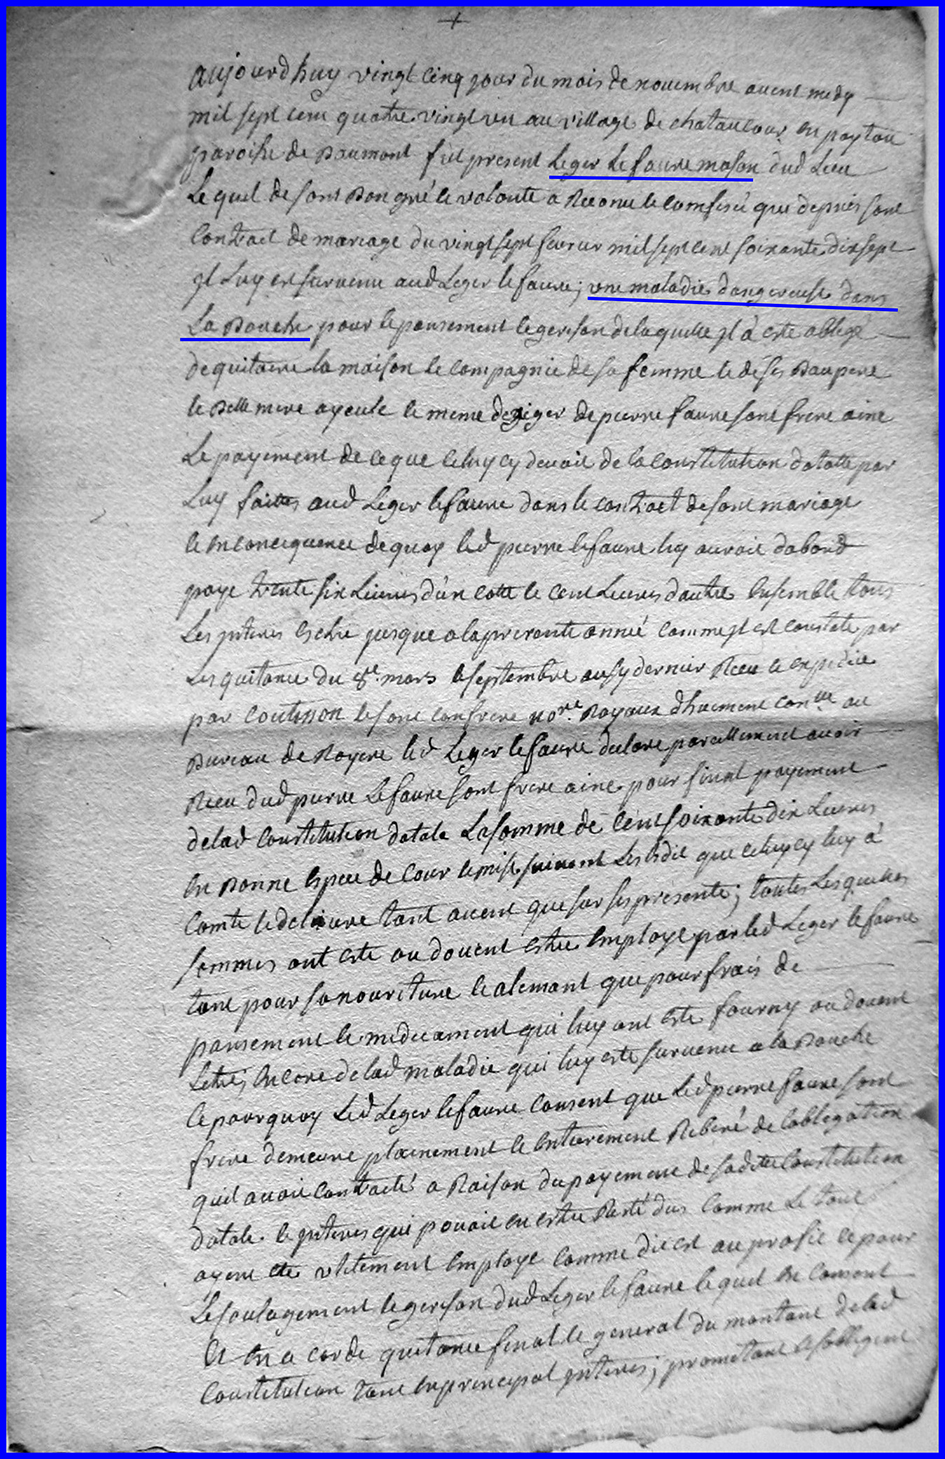 aujourdhuy vingt cinq jour du mois de novembre avent midy
mil sept cent quatre vingt un au village de chataucour en poytou
paroisse de Baumont fut present Leger Lefaure mason dud Lieu
Lequel de sont Bon gré le volonté a Reconu le comfessé que depuis sont
Contract de mariage du vingt sept fevrier mil sept cent soixante dix sept
jl Luy est survenu aud Leger lefaure; une maladie dangereuse dans
La Bouche pour le pansement le gerison delaquelle jl a esté obligé
dequitaire la maison le compagnie de sa femme le de ses Baupere
le Belle mere ayeule le meme de<del></del>xiger de pierre faure sont frere ainé
Le payement de ce que celuy cy devoit de la Constitution dotalle par
Luy faittes aud Leger lefaure dans le contract de sont mariage
le En concequence dequoy led pierre lefaure luy auroit dabord
paye trente six Livres d'un cotte le cent Livres d'autre Ensemble tous
Les jnteres Echu jusque a la presente année comme jl est constaté par
Les quitance du 8e mars le septembre aussy dernier Reçu le expedié
par Coutisson le sont confrere nore Royaux dhument conlle au
Bureau de Royere led Leger lefaure declare pareillement avoir
Reçu dud pierre Lefaure sont frere ainé pour finat payement
delad Constitution dotale La somme de cent soixante dix Livres
En Bonne Espece de Cour le mise suivant Les Edit que celuy cy luy á
Comté le delivré tant avent que sur ses presente; toutes Lesquelles
sommes ont esté ou doivent estre Employé par led Leger lefaure
tant pour sa nouriture le alemant que pour frais de
pansement le medicament qui luy ont esté fourny ou doivent
Letre Encore delad maladie qui luy este survenu a la Bouche
Ce pourquoy Led Leger lefaure consent que Led pierre faure sont
frere demeure plainement le Entierement Reberé de lobligation
quil avoit contracté a Raison du payement de sadite Constitution
dotale le jnteres qui pouvait en estre Resté dus comme Le tout
ayent eté utilement Employé comme dit est au profit le pour
Le soulagement le gerison dud Leger lefaure lequel En consent
Et En a cordé quitance finat le general du montant delad
Constitution tant En principal jnteres; prometant le sobligent